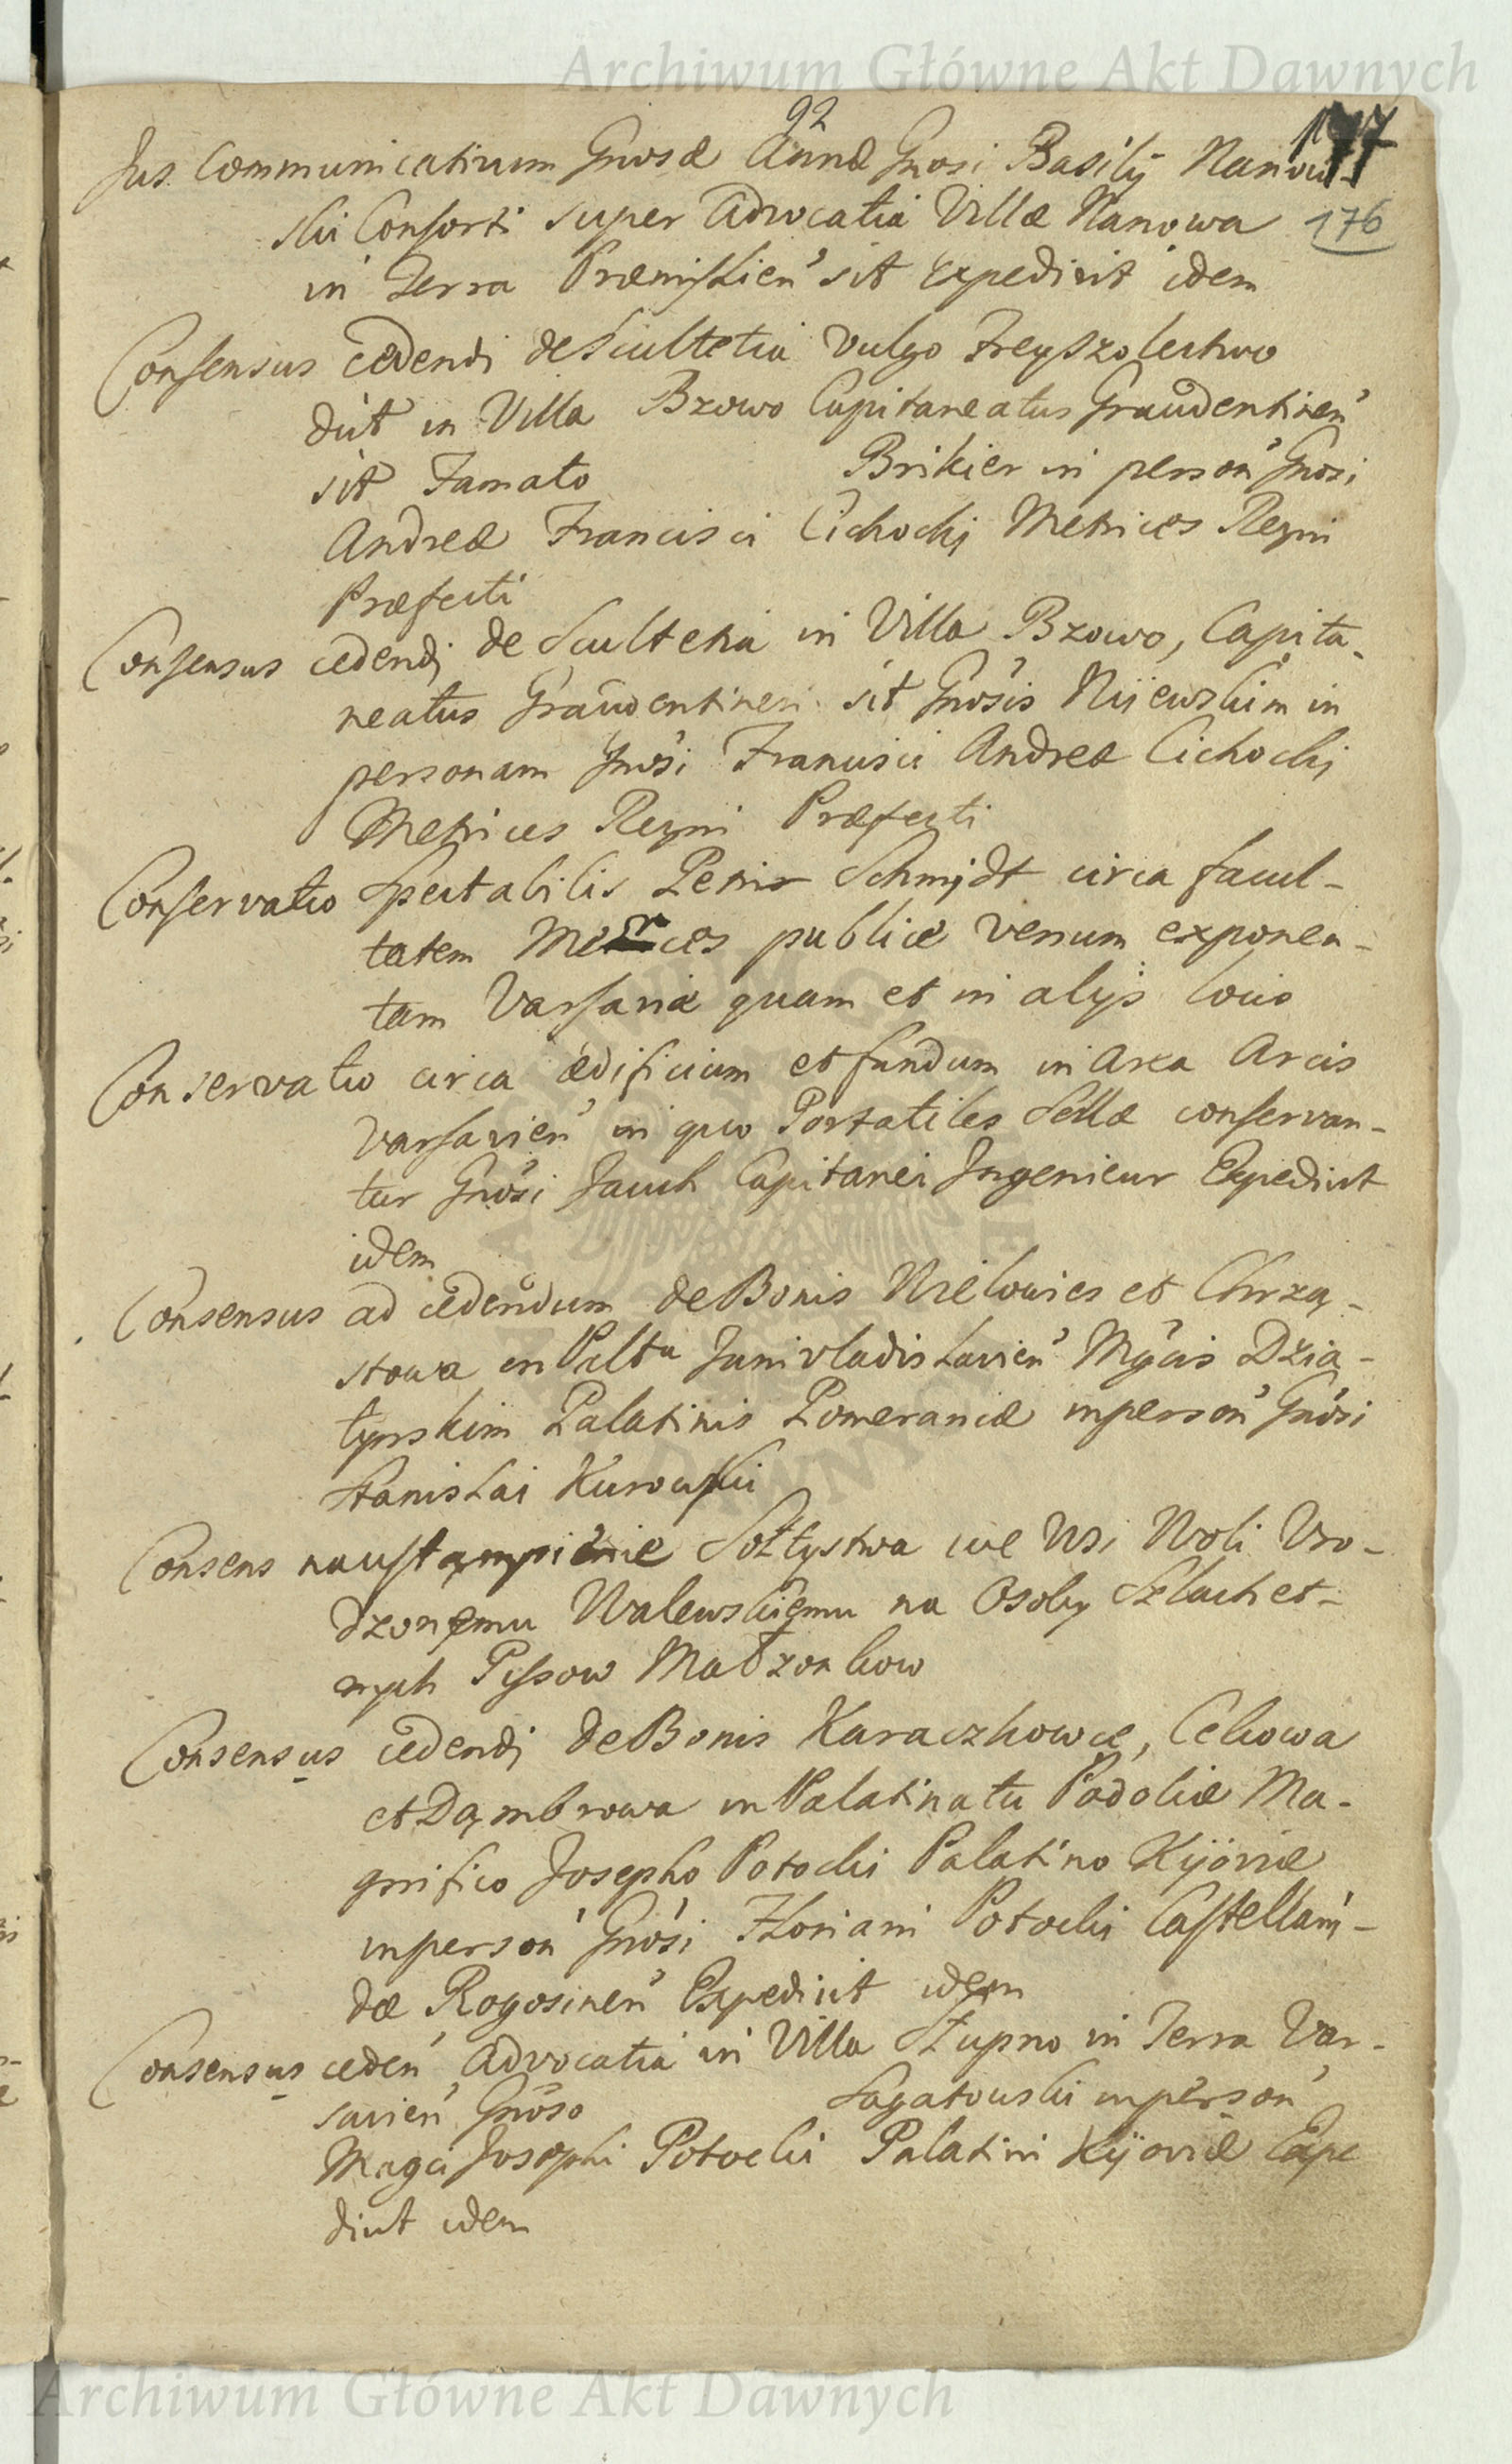 Archiwum Główne Akt Dawnych
92
177
Jus Communicativum Gnosæ Annæ Gnosi Basilÿ Nanow-
ski Consorti super Advocatia Villæ Nanowa 176
in Terra Præmislien sit Expedivit idem
Consensus cedendi de Scultetia vulgo Freyszolectwo
dict in Villa Bzowo Capitaneatus Graudentinen
sit Famato Brikier in person Gnosi
Andreæ Francisci Cichocki Metrices Regni
Præfecti
Consensus cedendi de Scultetia in Villa Bzowo, Capita-
neatus Graudentinen sit Gnosis Niiewskim in
personam Gnosi Francisci Andreæ Cichocki
Metrices Regni Præfecti
Conservatio Spectabilis Petri Schmjdt circa facul-
tatem Merces publice venum exponen-
tam Varsaviæ quam et in alys locis
Conservatio circa ædificium et fundum in Area Arcis
Varsavien in quo Portatiles Sellæ conservan-
tur Gnosi Jauch Capitanei Jngenieur Expedivit
idem
Consensus ad cedendum de Bonis Wielowies et Chrzą-
stowa in Palttu Junivladislavien Mgcis Dzia-
tynskim Palatinis Pomeraniæ inperson Gnosi
Stanislai Kurowski
Consens naustąmpienie Sołtystwa we Wsi Woli Vro-
dzonemu Walewskiemu na Osoby Szlachet-
nych Pissow Małzonkow
Consensus cedendi de Bonis Karaczkowce, Cekowa
et Dąmbrowa in Palatinatu Podoliæ Ma-
gnifico Josepho Potocki Palatino Kijoviæ
inperson Gnosi Floriani Potocki Castellani-
dæ Rogosinen Expedivit idem
Consensus ceden Advocatia in Villa Słupno in Terra Var-
savien Gnoso Sagatowski inperson
Magci Josephi Potocki Palatini Kijoviæ Expe
divit idem
Archiwum Główne Akt Dawnych